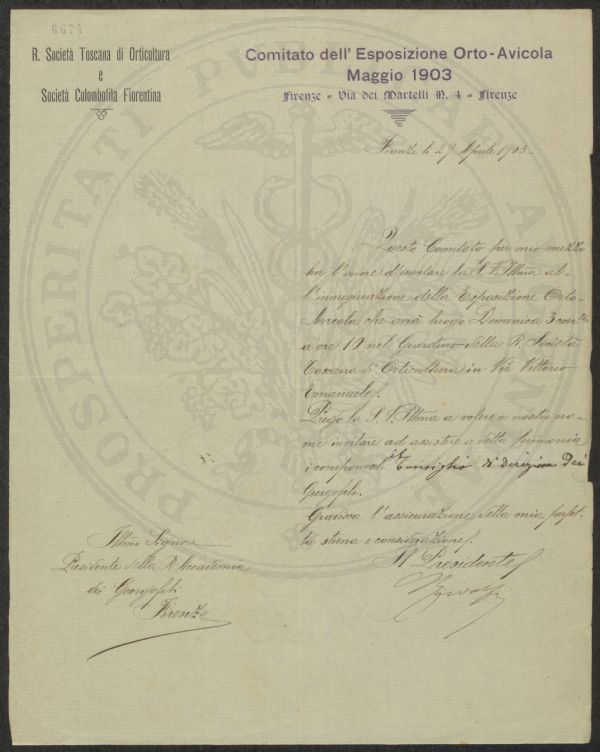 R. Società Toscana di Orticultura
e
Società Colombofila Fiorentina
Comitato dell' Esposizione Orto-Avicola
Maggio 1903
Firenze - Via dei Martelli N. 4 - Firenze
Firenze li 29 Aprile 1903
Questo Comitato per mio mezzo
ha l'onore d'invitare la S. V. Illma al-
l'inaugurazione della Esposizione Orto-
Avicola che avrà luogo Domenica 3
a ore 10 nel Giardino della R. Società
Toscana di Orticultura in Via Vittorio
Emanuele.
Prego la S. V. Illma a volere a nostro no-
me invitare ad assistere a detta cerimonia
i componenti il Consiglio di Direzione dei
Georgofili.
Gradisca l'assicurazione della mia perfet-
ta stima e considerazione.
Il Presidente
Illmo Signore
Presidente della R. Accademia
di Georgofili
Firenze
PROSPERITATI PUBLICAE